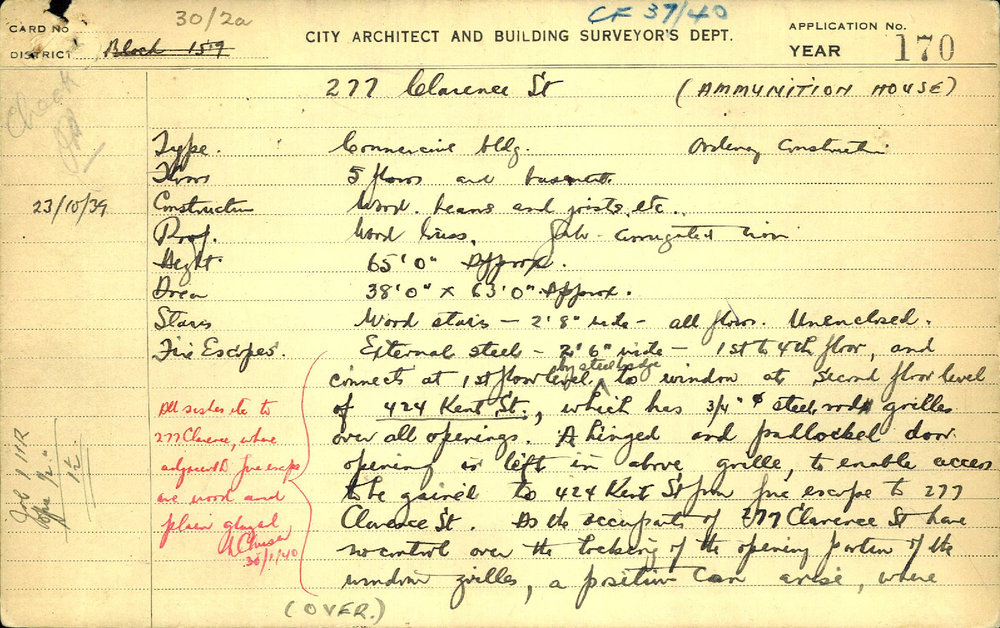 30/2a
CF 37/40
CARD NO
DISTRICT Block 159
CITY ARCHITECT AND BUILDING SURVEYOR'S DEPT.
APPLICATION No.
YEAR 170
Check
277 Clarence St (AMMUNITION HOUSE)
Type. Commercial bldg. Ordinary Construction
Floors 5 floors and basement.
23/10/39
Construction Wood. beams and joists, etc..
Roof. Wood truss, Galv. corrugated iron
Height. 65'0" Approx.
Area 38'0" x 63'0" Approx.
Stairs Wood stairs - 2'8" wide - all floors. Unenclosed.
Fire Escapes. External steel - 2'6" wide - 1st to 4th floor, and
connects at 1st floor level, by steel bridge to window at second floor level
of 424 Kent St., which has 3/4" ø steel rod grilles
over all openings. A hinged and padlocked door
opening is left in above grille, to enable access
to be gained to 424 Kent St from fire escape to 277
Clarence St. As the occupants of 277 Clarence St have
no control over the locking of the opening portion of the
window grilles, a position can arise, where
All sashes etc to
277 Clarence, where
adjacent to fire escape
are wood and
plain glazed
30/1/40
(OVER.)